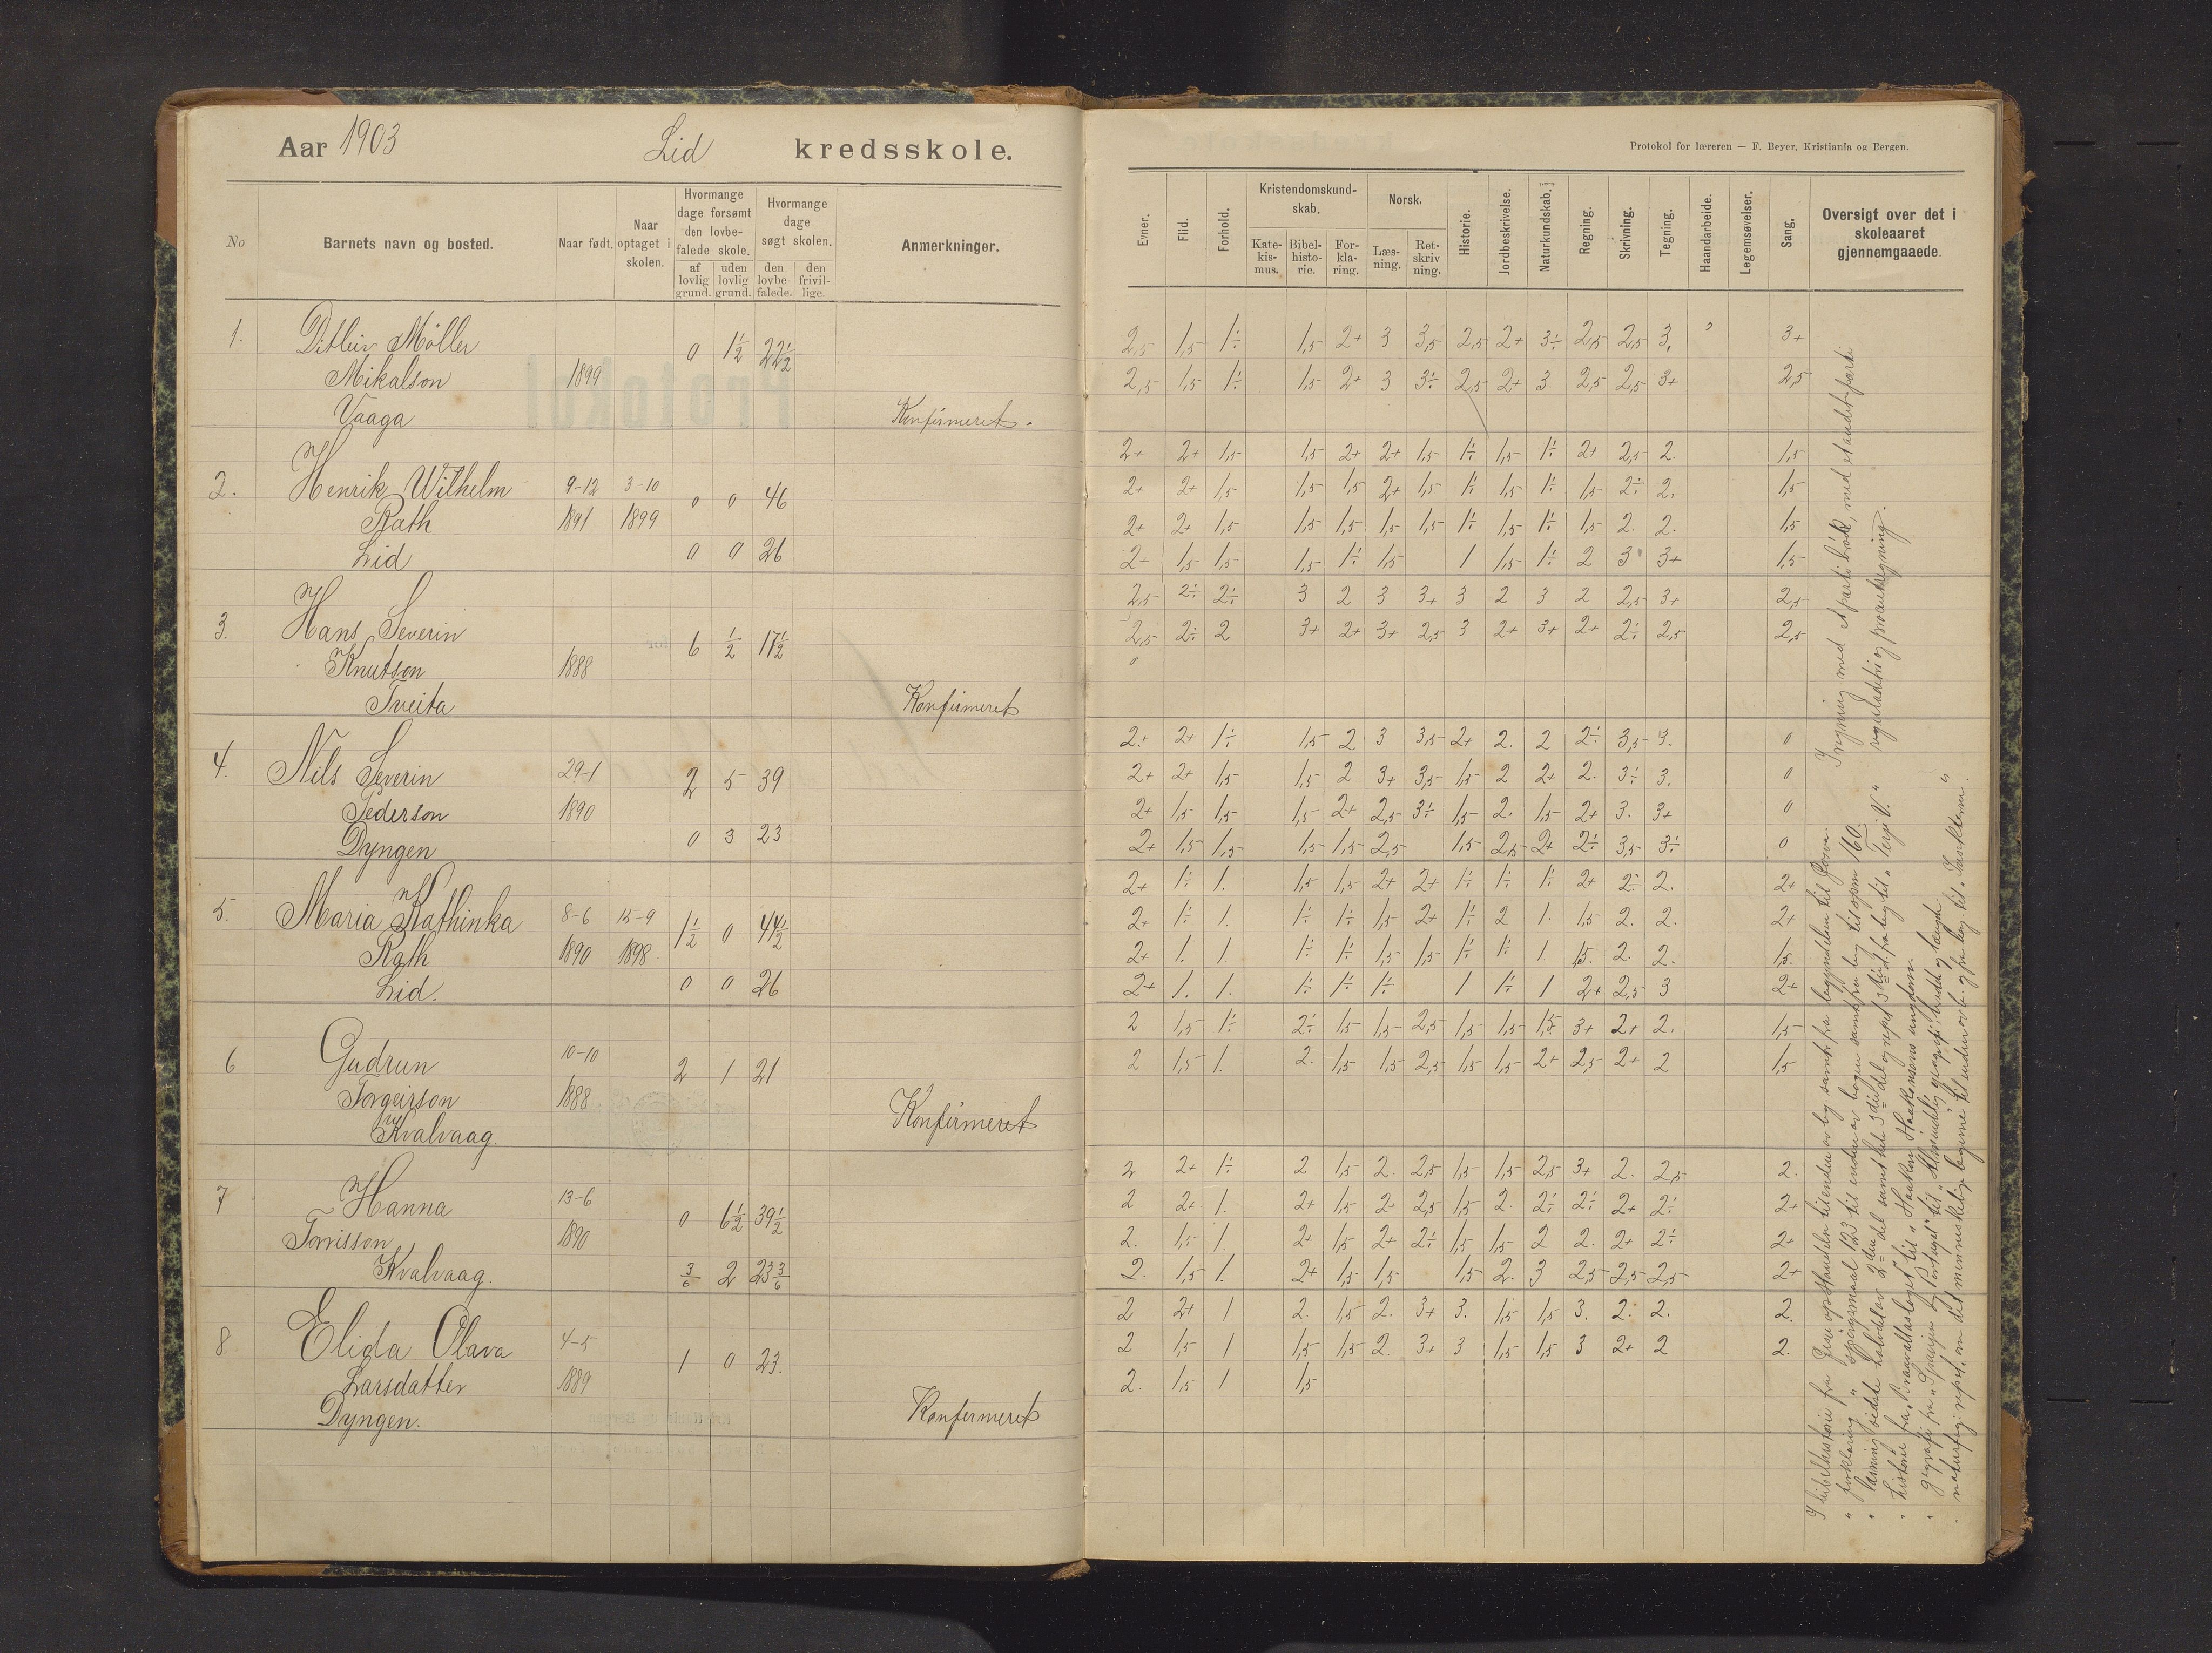 Aar 1903 Lid kredsskole.
No
Barnets navn og bosted.
Naar født.
Naar optaget i skolen.
Hvormange dage forsømt den lovbefalede skole.
af lovlig grund.
uden lovlig grund.
Hvormange dage søgt skolen.
den lovbefalede.
den frivillige.
Anmerkninger.
1. Ditleiv Møller 0 1½ 22½
Mikalson 1899
Vaaga Konfirmeret.
2. Henrik Wilhelm 9-12 3-10 0 0 46
Rath 1891 1899
Lid 0 0 26
3. Hans Severin 6 ½ 17½
Knutson 1888
Tveita Konfirmeret
4. Nils Severin 29-1 2 5 39
Pederson 1890
Dyngen 0 3 23
5. Maria Kathinka 8-6 15-9 1½ 0 44½
Rath 1890 1898
Lid. 0 0 26
6 Gudrun 10-10 2 1 21
Torgeirson 1888
Kvalvaag. Konfirmeret
7 Hanna 13-6 0 6½ 39½
Torrisson 1890
Kvalvaag. 3/6 2 23 3/6
8 Elida Olava 4-5 1 0 23.
Larsdatter 1889
Dyngen. Konfermeret
Protokol for læreren — F. Beyer, Kristiania og Bergen.
Evner.
Flid.
Forhold.
Kristendomskundskab.
Katekismus.
Bibelhistorie.
Forklaring.
Norsk.
Læsning.
Retskrivning.
Historie.
Jordbeskrivelse.
Naturkundskab.
Regning.
Skrivning.
Tegning.
Haandarbeide.
Legemsøvelser.
Sang.
Oversigt over det i skoleaaret gjennemgaaede.
2,5 1,5 1÷ 1,5 2+ 3 3,5 2,5 2+ 3÷ 2,5 2,5 3. 3+
2,5 1,5 1÷ 1,5 2+ 3 3÷ 2,5 2+ 3. 2,5 2,5 3+ 2,5
2+ 2+ 1,5 1,5 2+ 2+ 1,5 1÷ 1,5 1÷ 2+ 2,5 2. 1,5
2+ 2+ 1,5 1,5 1,5 2+ 1,5 1÷ 1,5 1÷ 1,5 2÷ 2. 1,5
2+ 2+ 1,5 1,5 1,5 1,5 1,5 1÷ 1,5 1÷ 1,5 2. 2. 1,5
2+ 1,5 1,5 1,5 1÷ 1,5 1 1,5 1÷ 2 3 3+ 1,5
2,5 2÷ 2÷ 3 2 3 3+ 3 2 3 2 2,5 3+ 2,5
2,5 2÷ 2 3+ 2+ 3+ 2,5 3 2+ 3+ 2+ 2÷ 2,5 2,5
2+ 2+ 1÷ 1,5 2 3 3,5 2+ 2. 2 2÷ 3,5 3. 0
2+ 2+ 1,5 1,5 2 3+ 3,5 1,5 2 2+ 2. 3÷ 3. 0
2+ 1,5 1,5 1,5 2+ 2,5 3÷ 1,5 2. 1,5 2+ 3. 3+ 0
2+ 1,5 1,5 1,5 1,5 2,5 1,5 2,5 2+ 2÷ 3,5 3÷ 0
2+ 1÷ 1. 1,5 1,5 2+ 2+ 1÷ 1÷ 1÷ 2+ 2÷ 2. 2+
2+ 1÷ 1. 1÷ 1÷ 1,5 2+ 1÷ 2 1. 1,5 2. 2. 2+
2+ 1. 1. 1÷ 1÷ 1,5 1,5 1÷ 1÷ 1. 1,5. 2. 2. 1,5.
2+ 1. 1. 1÷ 1÷ 1÷ 1 1÷ 1 2+ 2,5 3 2+
2 1,5 1÷ 2÷ 1,5 1,5 2,5 1,5 1,5 1,5 3+ 2+ 2. 1,5
2 1,5 1. 2. 1,5 1,5 2,5 1,5 1,5 2+ 2,5 2+ 2 1,5
2 2+ 1÷ 2 1,5 2. 2,5 1,5 1,5 2,5 3+ 2. 2,5 2.
2 2+ 1. 2+ 1,5 2+ 2,5 1,5 2. 2÷ 2÷ 2+ 2÷ 2+
2. 1,5 1. 2+ 1,5 2+ 2÷ 1,5 1,5 2 2. 2+ 2÷ 2+
2. 1,5 1. 2+ 1,5 1,5 1,5 2. 3 2,5 2,5 2,5 2+
2 2+ 1 2. 1,5 2. 3+ 3. 1,5 1,5 3. 2. 2. 2.
2 1,5 1 1,5 1,5 2. 3+ 3 1,5 1,5 3 2+ 2 2.
2. 1,5 1 1,5
I bibelhistorie fra Jesu opstandelse til enden av bog samt fra begyndelsen til
" forklaring " spörgsmaal 123 til enden av bogen samt fra beg. til spm 160.
" læsning sidste halvdel av 2den del samt hele 3die del og fra beg. til "Terje V."
" historie fra til "Haakon Haakonsens ungdom.
" geografi fra "Spanien og Portugal" til "Almindelig geografi": bredde og længde.
" naturfag: repet. om det menneskelige legeme til enden av b. og fra beg. til "Insekterne"
I regning med et parti med et andet parti
reguladetri og procentregning.